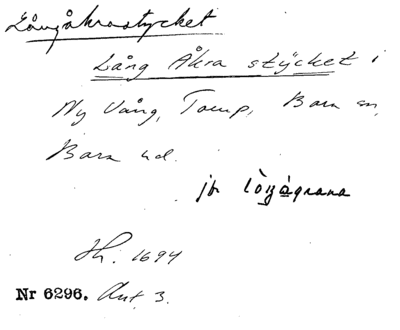 Långåkrastycket
Lång Åkra stÿcket i
Ny Vång, Torup, Bara sn,
Bara hd.
jb
Jb. 1694
Nr 6296. Ant. 3.